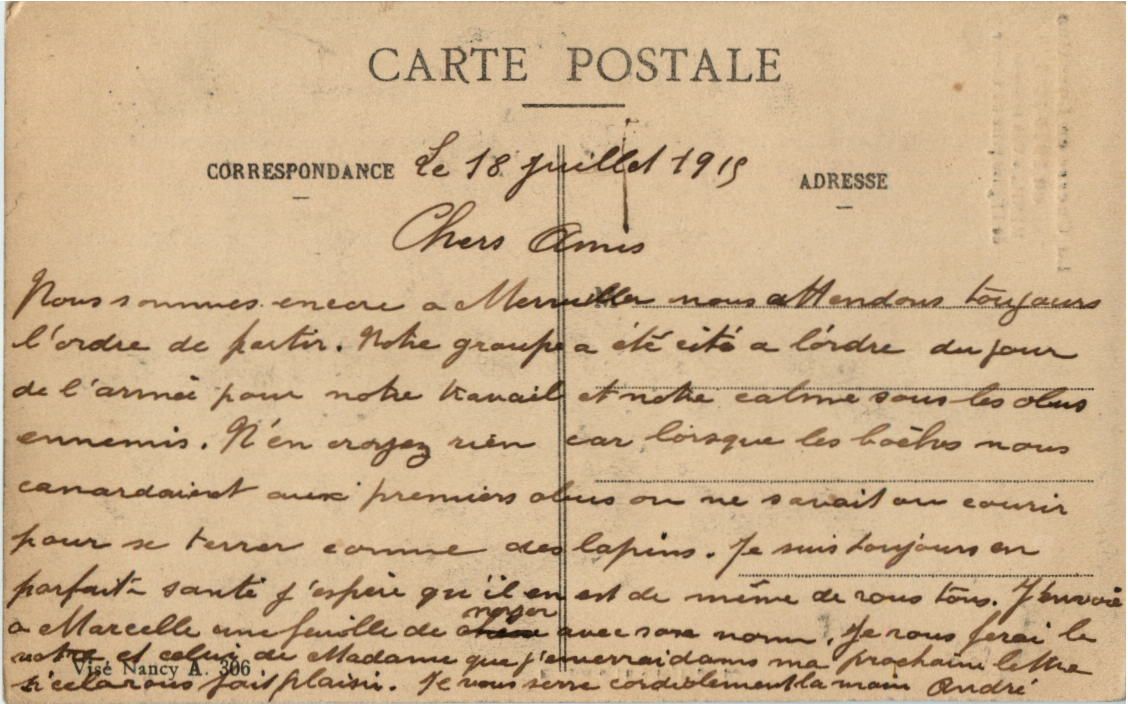 CARTE POSTALE
CORRESPONDANCE Le 18 juillet 1915 ADRESSE
Chers Amis
Nous sommes encore a Merviller nous attendons toujours
l'ordre de partir. Notre groupe a été cité a l'ordre du jour
de l'armée pour notre travail et notre calme sous les obus
ennemis. N'en croyez rien car lorsque les boches nous
canardaient aux premiers obus on ne savait ou courir
pour se terrer comme des lapins. Je suis toujours en
parfaite santé j'espère qu'il en est de même de vous tous. J'envoie
a Marcelle une feuille de avec son nom. Je vous ferai le
votre et celui de Madame que j'enverrai dans ma prochaine lettre
si cela vous fait plaisir. Je vous serre cordialement la main André
Visé Nancy A. 306